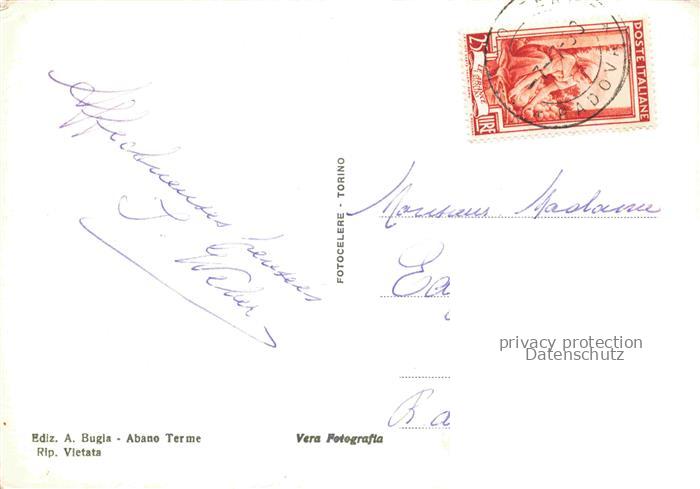 POSTE ITALIANE
25
LIRE
PADOVA
Affectueuses pensées
J. Weber
FOTOCELERE - TORINO
Monsieur Madame
privacy protection
Datenschutz
Ediz. A. Bugia - Abano Terme
Rip. Vietata
Vera Fotografia